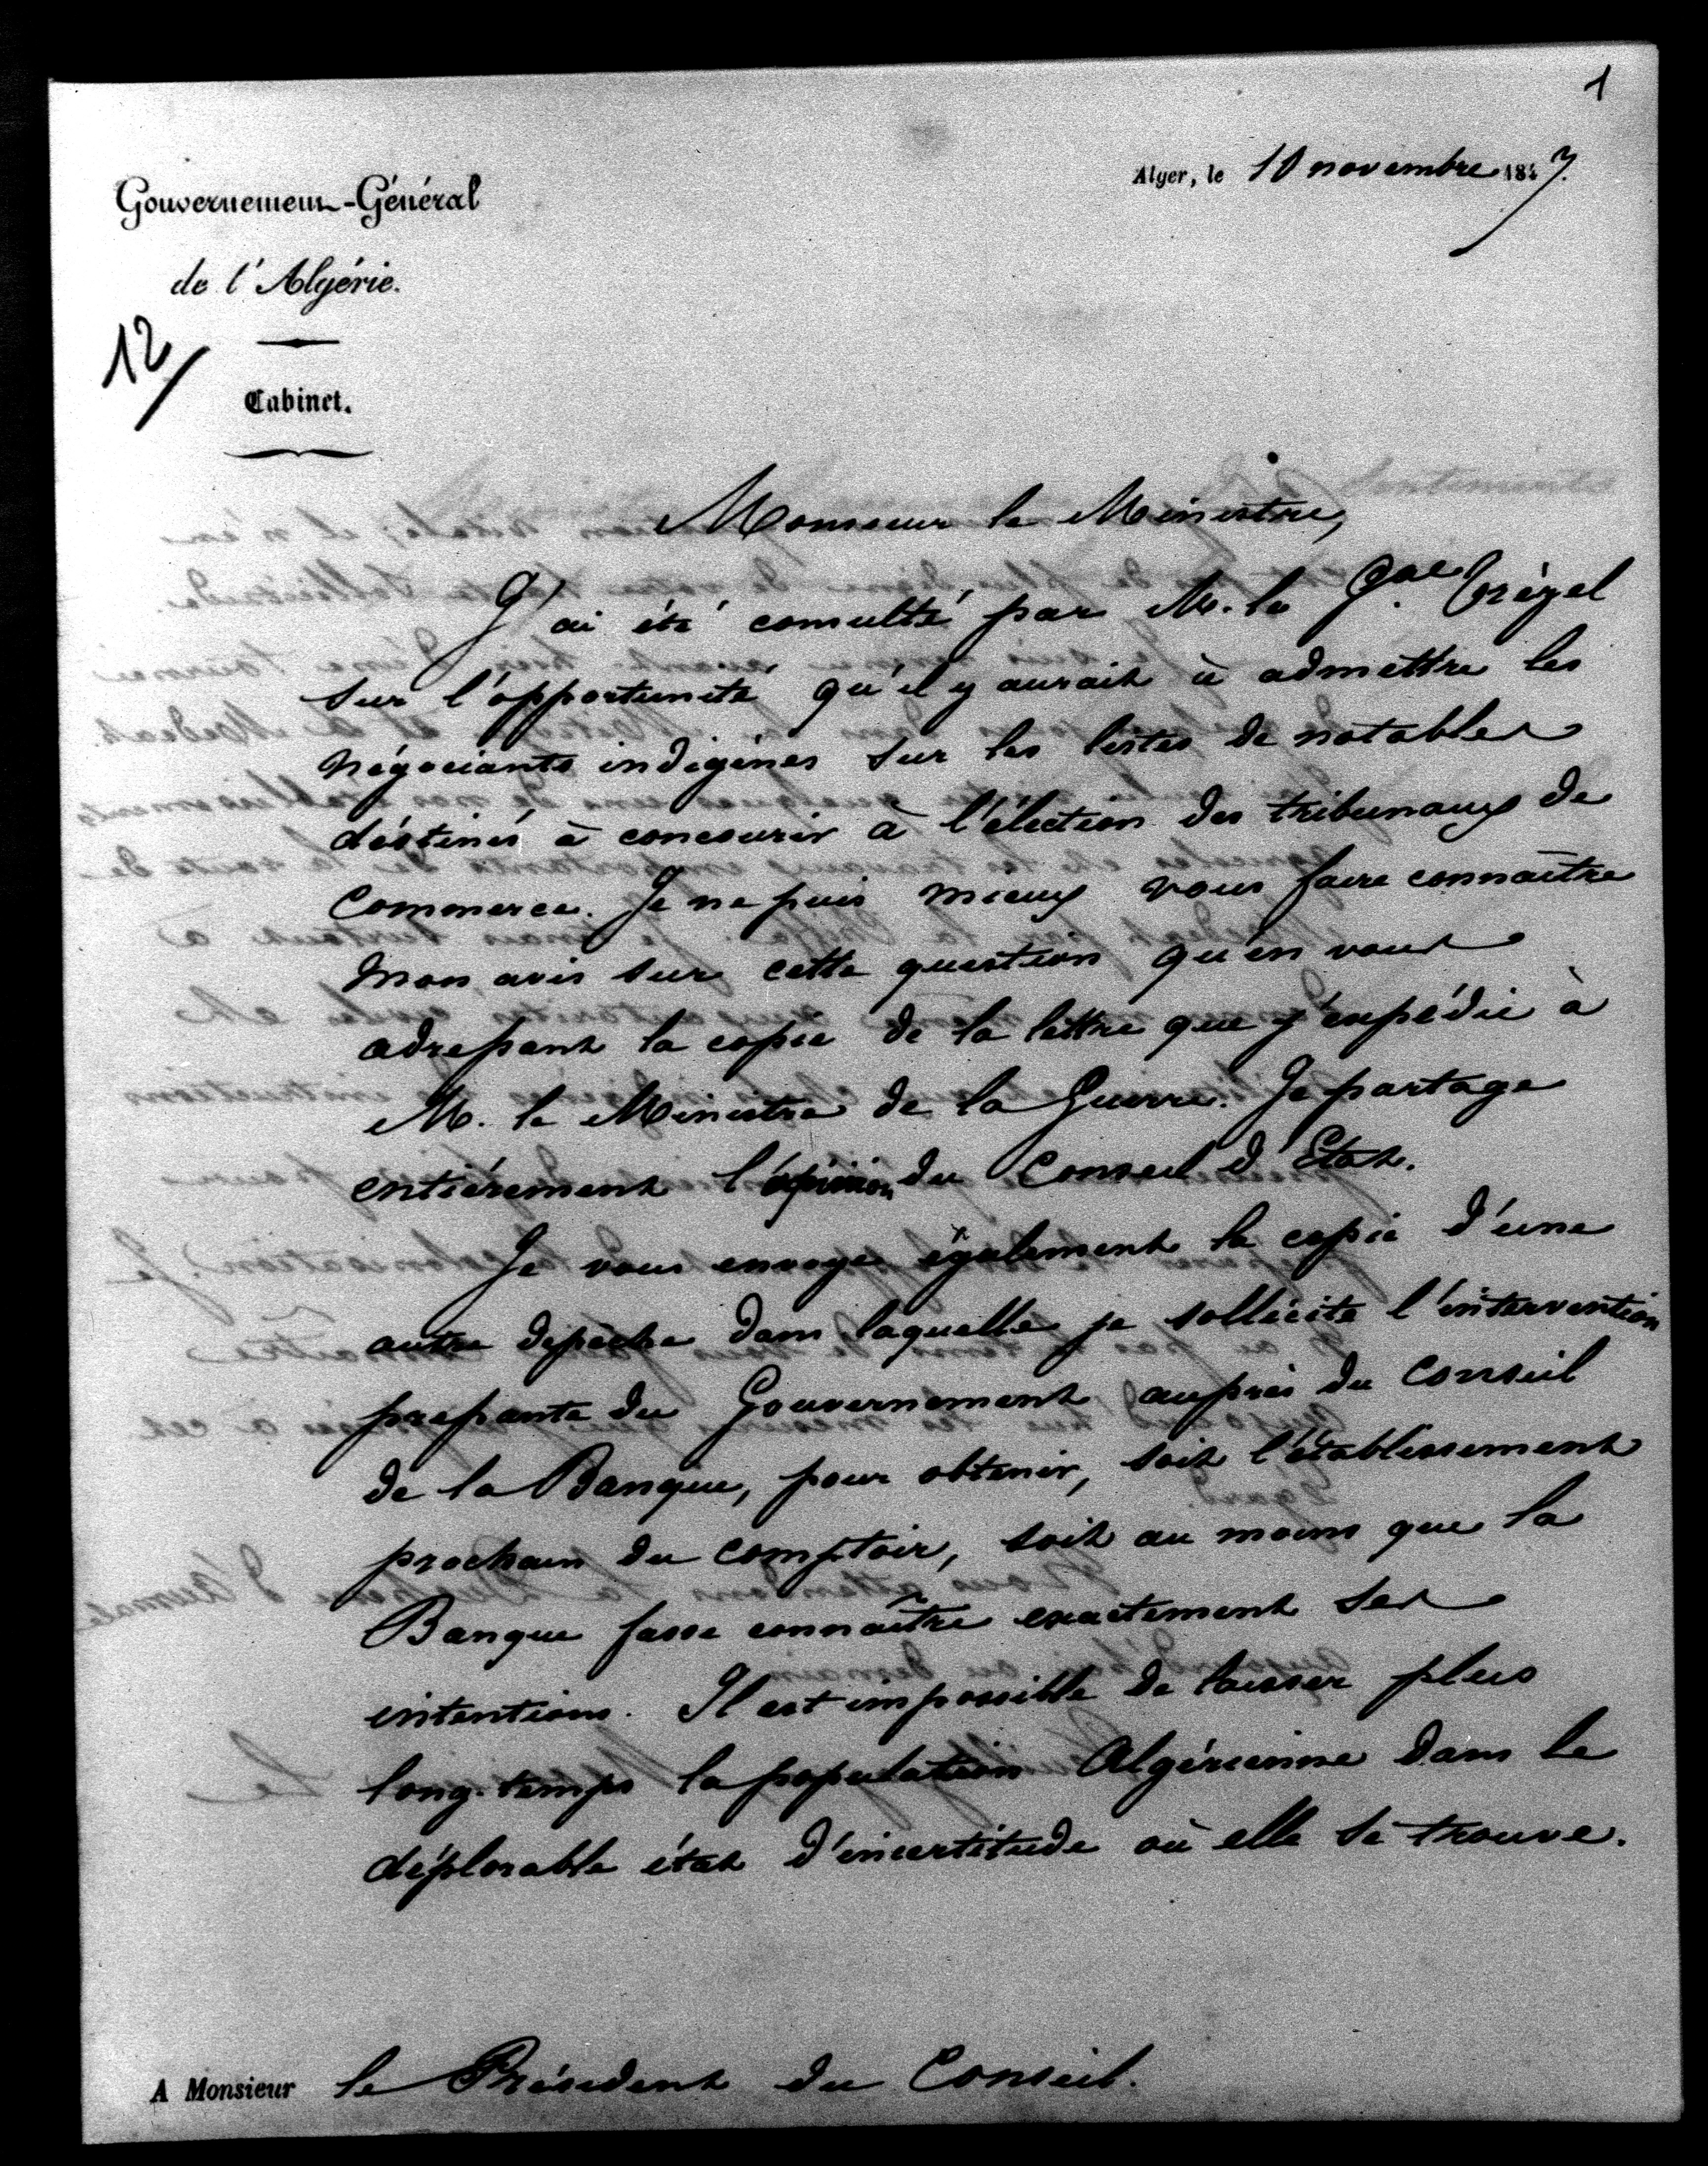 1
Alger, le 10 novembre 1847.
Gouvernement-Général
de l'Algérie.
12/
Cabinet.
Monsieur le Ministre,
J'ai été consulté par M. le Gal Trézel
sur l'opportunité qu'il y aurait à admettre les
négociants indigènes sur les listes de notables
destinés à concourir à l'élection des tribunaux de
Commerce. Je ne puis mieux vous faire connaître
mon avis sur cette question qu'en vous
adressant la copie de la lettre que j'expédie à
M. le Ministre de la Guerre. Je partage
entièrement l'opinion du Conseil d'Etat.
Je vous envoye également la copie d'une
autre dépêche dans laquelle je sollicite l'intervention
pressante du Gouvernement auprès du Conseil
de la Banque, pour obtenir, soit l'établissement
prochain du comptoir, soit au moins que la
Banque fasse connaître exactement ses
intentions. Il est impossible de laisser plus
long-temps la population Algérienne dans le
déplorable état d'incertitude où elle se trouve.
A Monsieur le Président du Conseil.